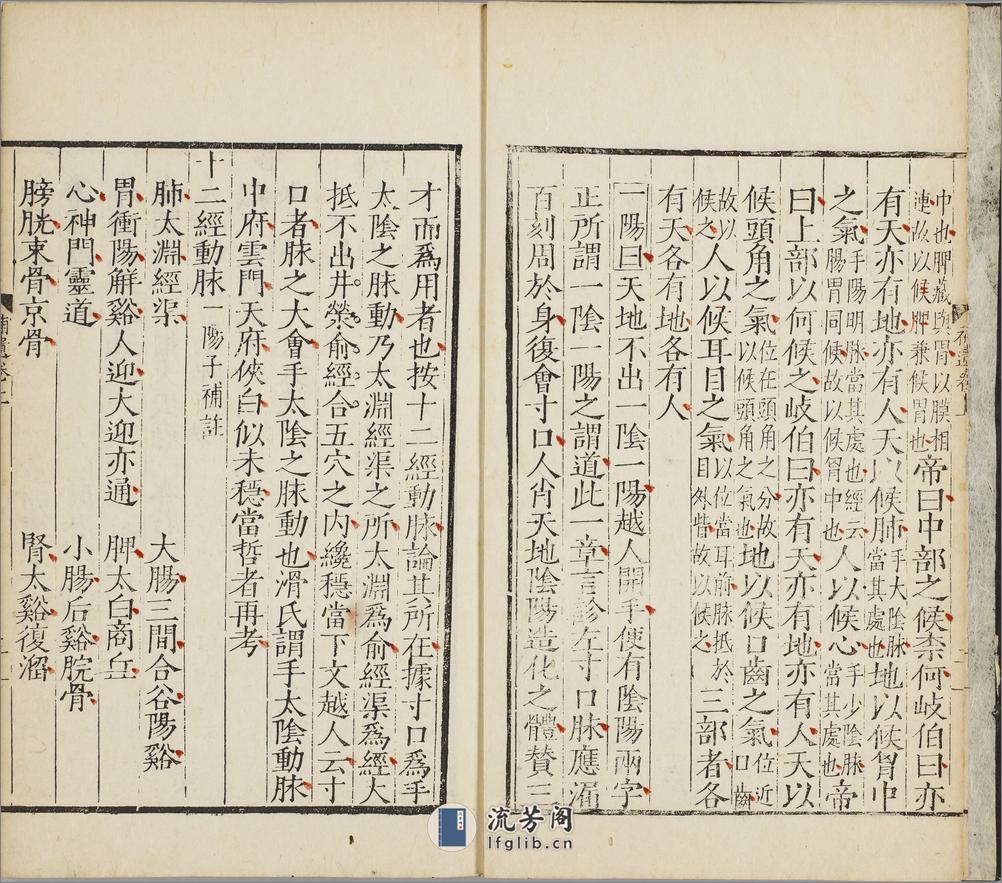 中也脾藏與胃以膜相
連故以候脾兼候胃也帝曰中部之候柰何岐伯曰亦
有天亦有地亦有人天以候肺手太陰脉當其處也地以候胷中
之氣手陽明脉當其處也經云腸胃同候故以候胷中也人以候心手少陰脉當其處也帝
曰上部以何候之岐伯曰亦有天亦有地亦有人天以
候頭角之氣位在頭角之分故以候頭角之氣也地以候口齒之氣位近口齒
故以候之人以候耳目之氣以位當耳前脉抵於目外眥故以候之三部者各
有天各有地各有人
一陽曰天地不出一陰一陽越人開手便有陰陽兩字
正所謂一陰一陽之謂道此一章言診左寸口脉應漏
百刻周於身復會寸口人肖天地陰陽造化之體贊三
才而爲用者也按十二經動脉論其所在據寸口爲手
太陰之脉動乃太淵經渠之所太淵爲俞經渠爲經大
抵不出井榮俞經合五穴之内纔穩當下文越人云寸
口者脉之大會手太陰之脉動也滑氏謂手太陰動脉
中府雲門天府俠白似未穩當哲者再考
十二經動脉一陽子補註
肺太淵經渠 大腸三間合谷陽谿
胃衝陽解谿人迎大迎亦通 脾太白商丘
心神門靈道 小腸后谿腕骨
膀胱束骨京骨 腎太谿復溜
流芳阁
lfglib.cn